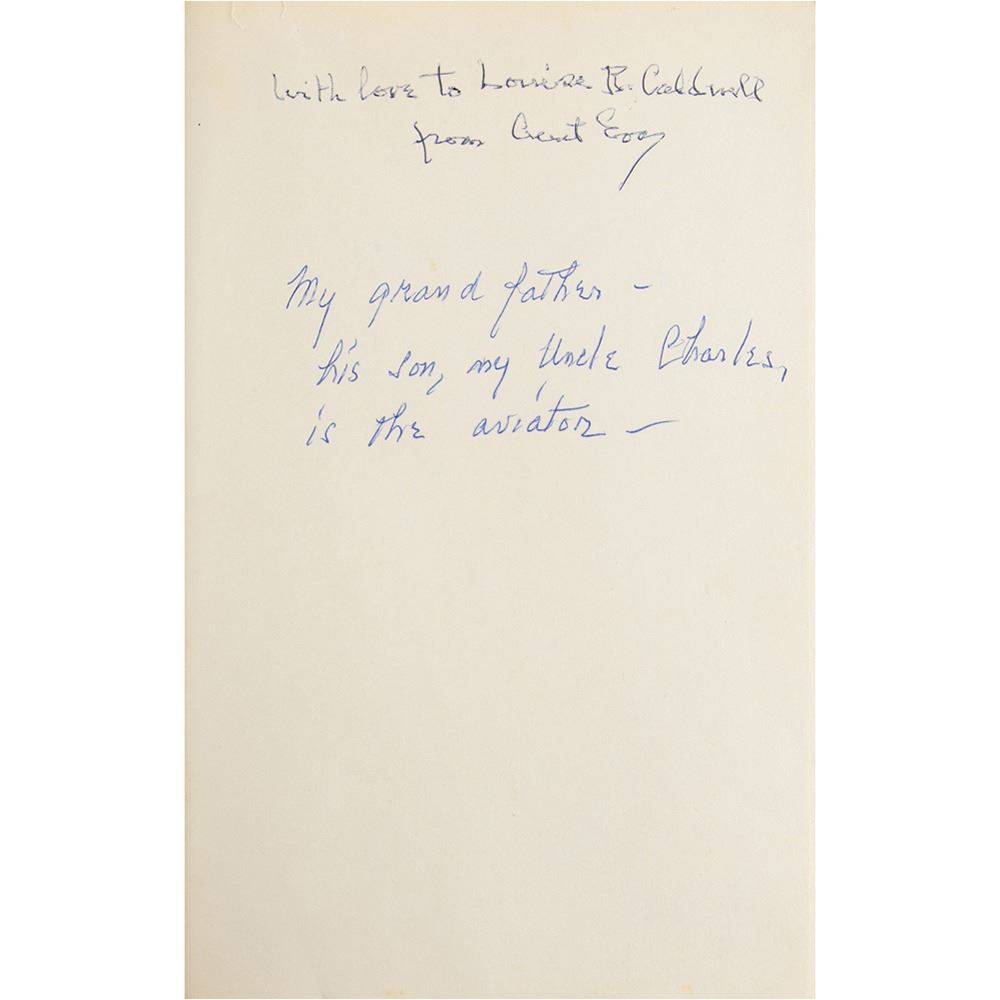 With love to Louise B. Caldwell
from Aunt Eva
My grand father -
his son, my Uncle Charles,
is the aviator -